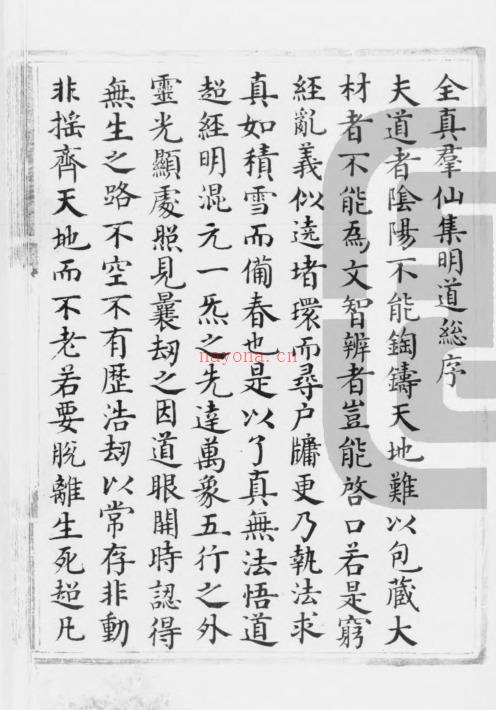 全真羣仙集明道総序
夫道者陰陽不能鋾鑄天地難以包藏大
材者不能爲文智辨者豈能啓口若是窮
經亂義似遶堵環而尋户牗更乃執法求
真如積雪而備春也是以了真無法悟道
超經明混元一炁之先達萬象五行之外
靈光顯處照見曩刼之因道眼開時認得
無生之路不空不有歴浩刼以常存非動
非揺齊天地而不老若要脫離生死超凡
nayona.cn